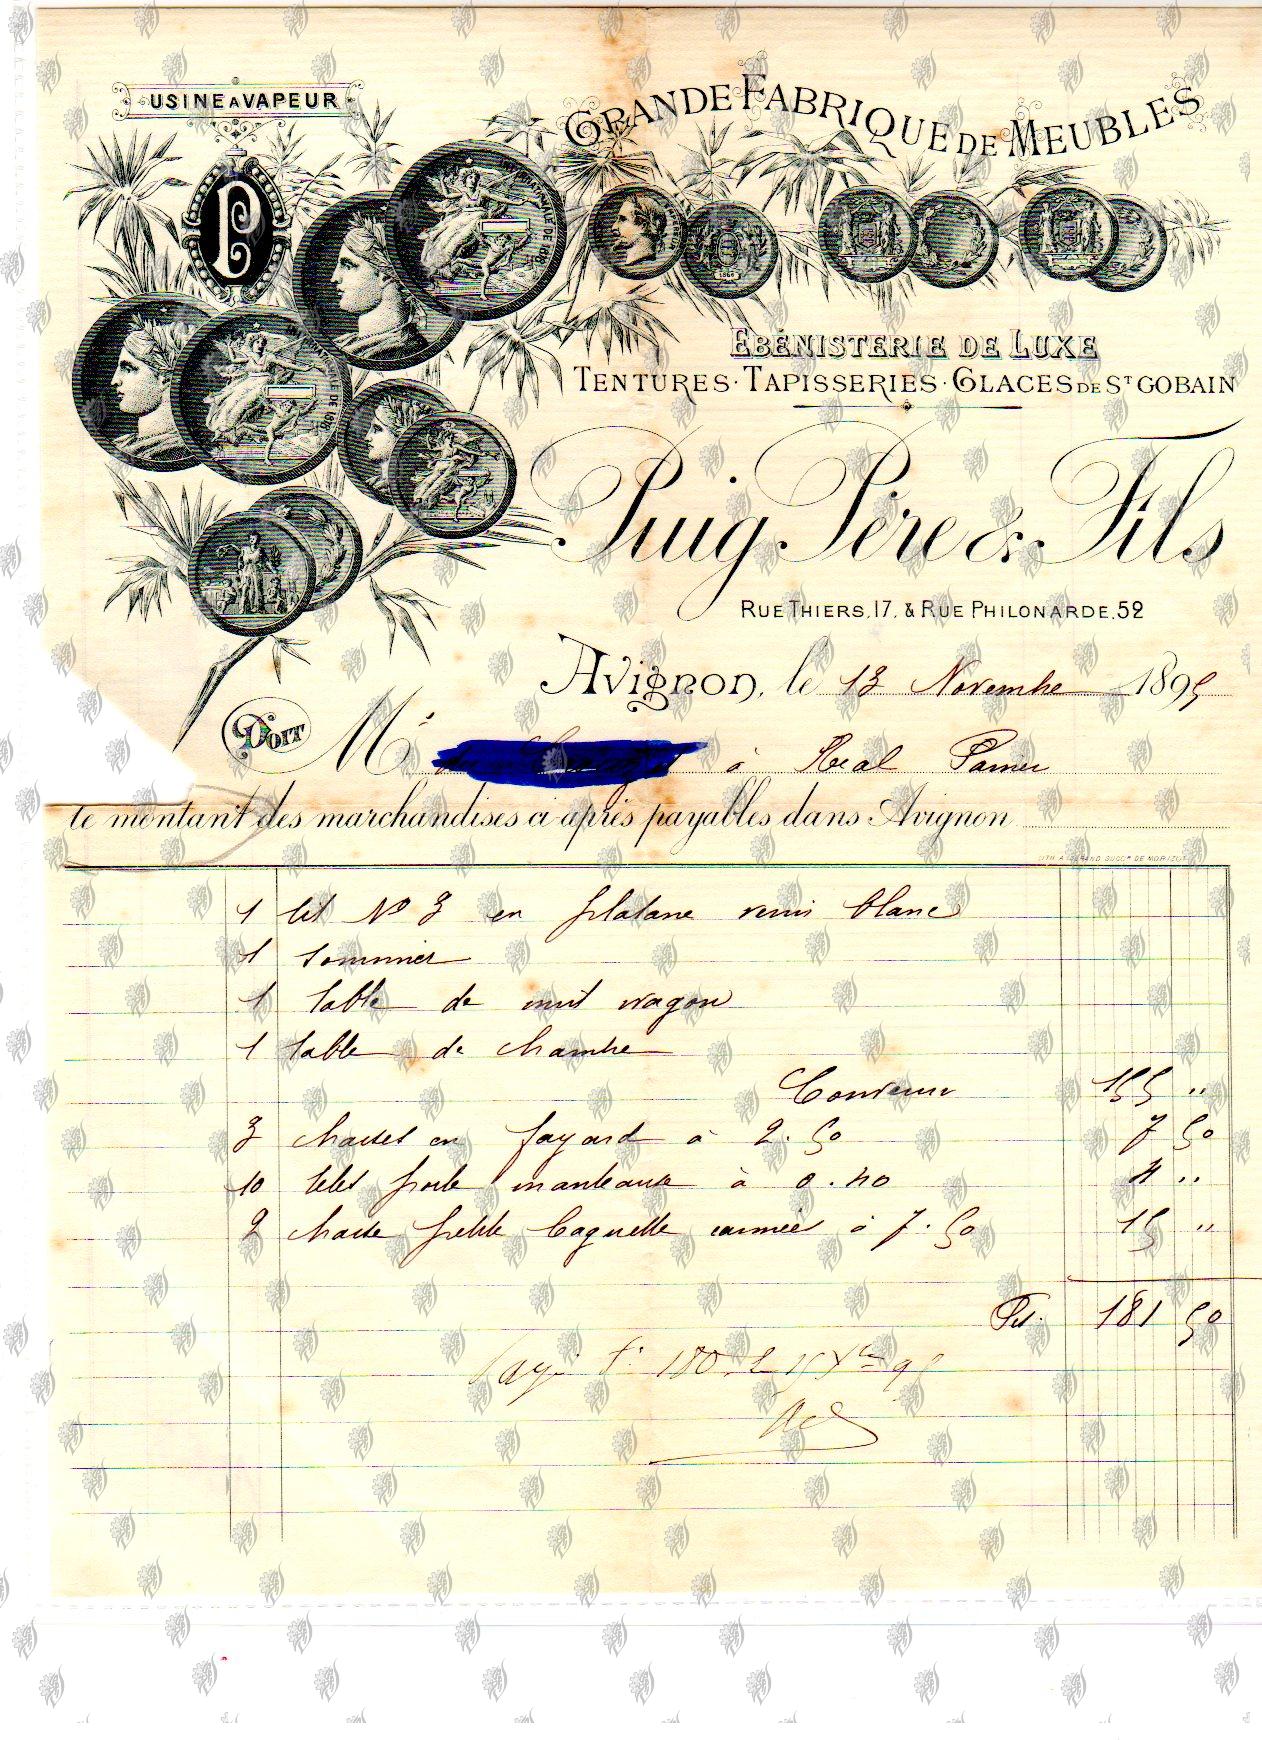 USINE A VAPEUR
GRANDE FABRIQUE DE MEUBLES
P
EBÉNISTERIE DE LUXE
TENTURES · TAPISSERIES · GLACES DE ST GOBAIN
Puig Père & Fils
RUE THIERS, 17, & RUE PHILONARDE, 52
Avignon, le 13 Novembre 1895
DOIT Mr à Réal Panier
le montant des marchandises ci-après payables dans Avignon
1 lit No 3 en platane verni blanc
1 sommier
1 table de nuit wagon
1 table de chambre
Convenu 155 "
3 chaises en fayard à 2.50 7 50
10 têtes porte manteaux à 0.40 4 "
2 chaise petite baguette cannée à 7.50 15 "
181 50
Payé 180 le 15 Xbre 95